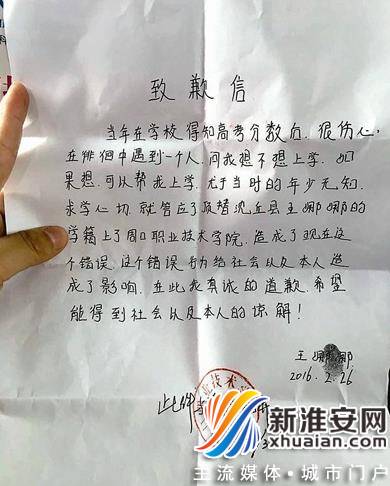 致歉信
当年在学校得知高考分数后,很伤心,
在徘徊中遇到一个人,问我想不想上学,如
果想,可以帮我上学,尤于当时的年少无知,
求学心切,就答应了顶替沈丘县王娜娜的
学籍上了周口职业技术学院,造成了现在这
个错误,这个错误 给社会以及本人造
成了影响,在此我真诚的道歉,希望
能得到社会以及本人的谅解!
王娜娜
2016.2.26
此件
新淮安网
xhuaian.com
主流媒体·城市门户